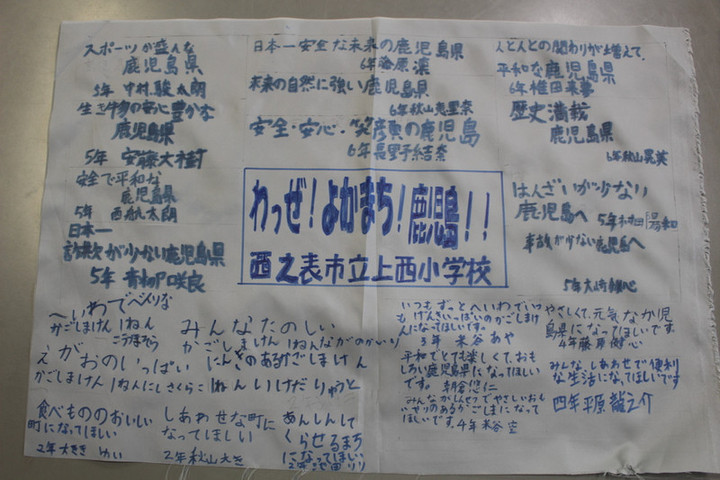 スポーツが盛んな
鹿児島県
5年 中村駿太朗
生き物の安心豊かな
鹿児島県
5年 安藤大樹
安全で平和な
鹿児島県
5年 西航太朗
日本一
詐欺が少ない鹿児島県
5年 咲良
日本一安全な未来の鹿児島県
6年 原凜
未来の自然に強い鹿児島県
6年秋山恵里奈
安全・安心・笑 の鹿児島
6年長野結奈
人と人との関わりが増えて、
平和な鹿児島県
6年椎田来夢
歴史満載
鹿児島県
6年秋山晃英
はんざいが少ない
鹿児島へ 5年村田陽和
事故が少ない鹿児島へ
5年大崎
わっぜ!よかまち!鹿児島!!
西之表市立上西小学校
へいわでべんりな
かごしまけん 1ねん
えがおのいっぱい
かごしまけん 1ねんにしさくらこ
みんなたのしい
かごしまけん 1ねんながのかいり
にんきのあるかごしまけん
1ねんいけだりゅうと
食べもののおいしい
町になってほしい
2年大さき ゆい
しあわせな町に
なってほしい
2年秋山大き
あんしんして
くらせるまち
になってほしい
2年池田りり
いつもずっとへいわでいつ
もけんきいっぱいのかごしまけ
んになってほしいです。
3年 米谷あや
平和でとても楽しくて、おも
しろい鹿児島県になってほしい
です。
みんながしんせつでやさしいおも
いやりのあるかごしまになって
ほしいです。4年米谷空
やさしくて、元気な鹿児
島県になってほしいです。
4年藤原健心
みんな、しあわせで便利
な生活になってほしいです
四年平原龍之介